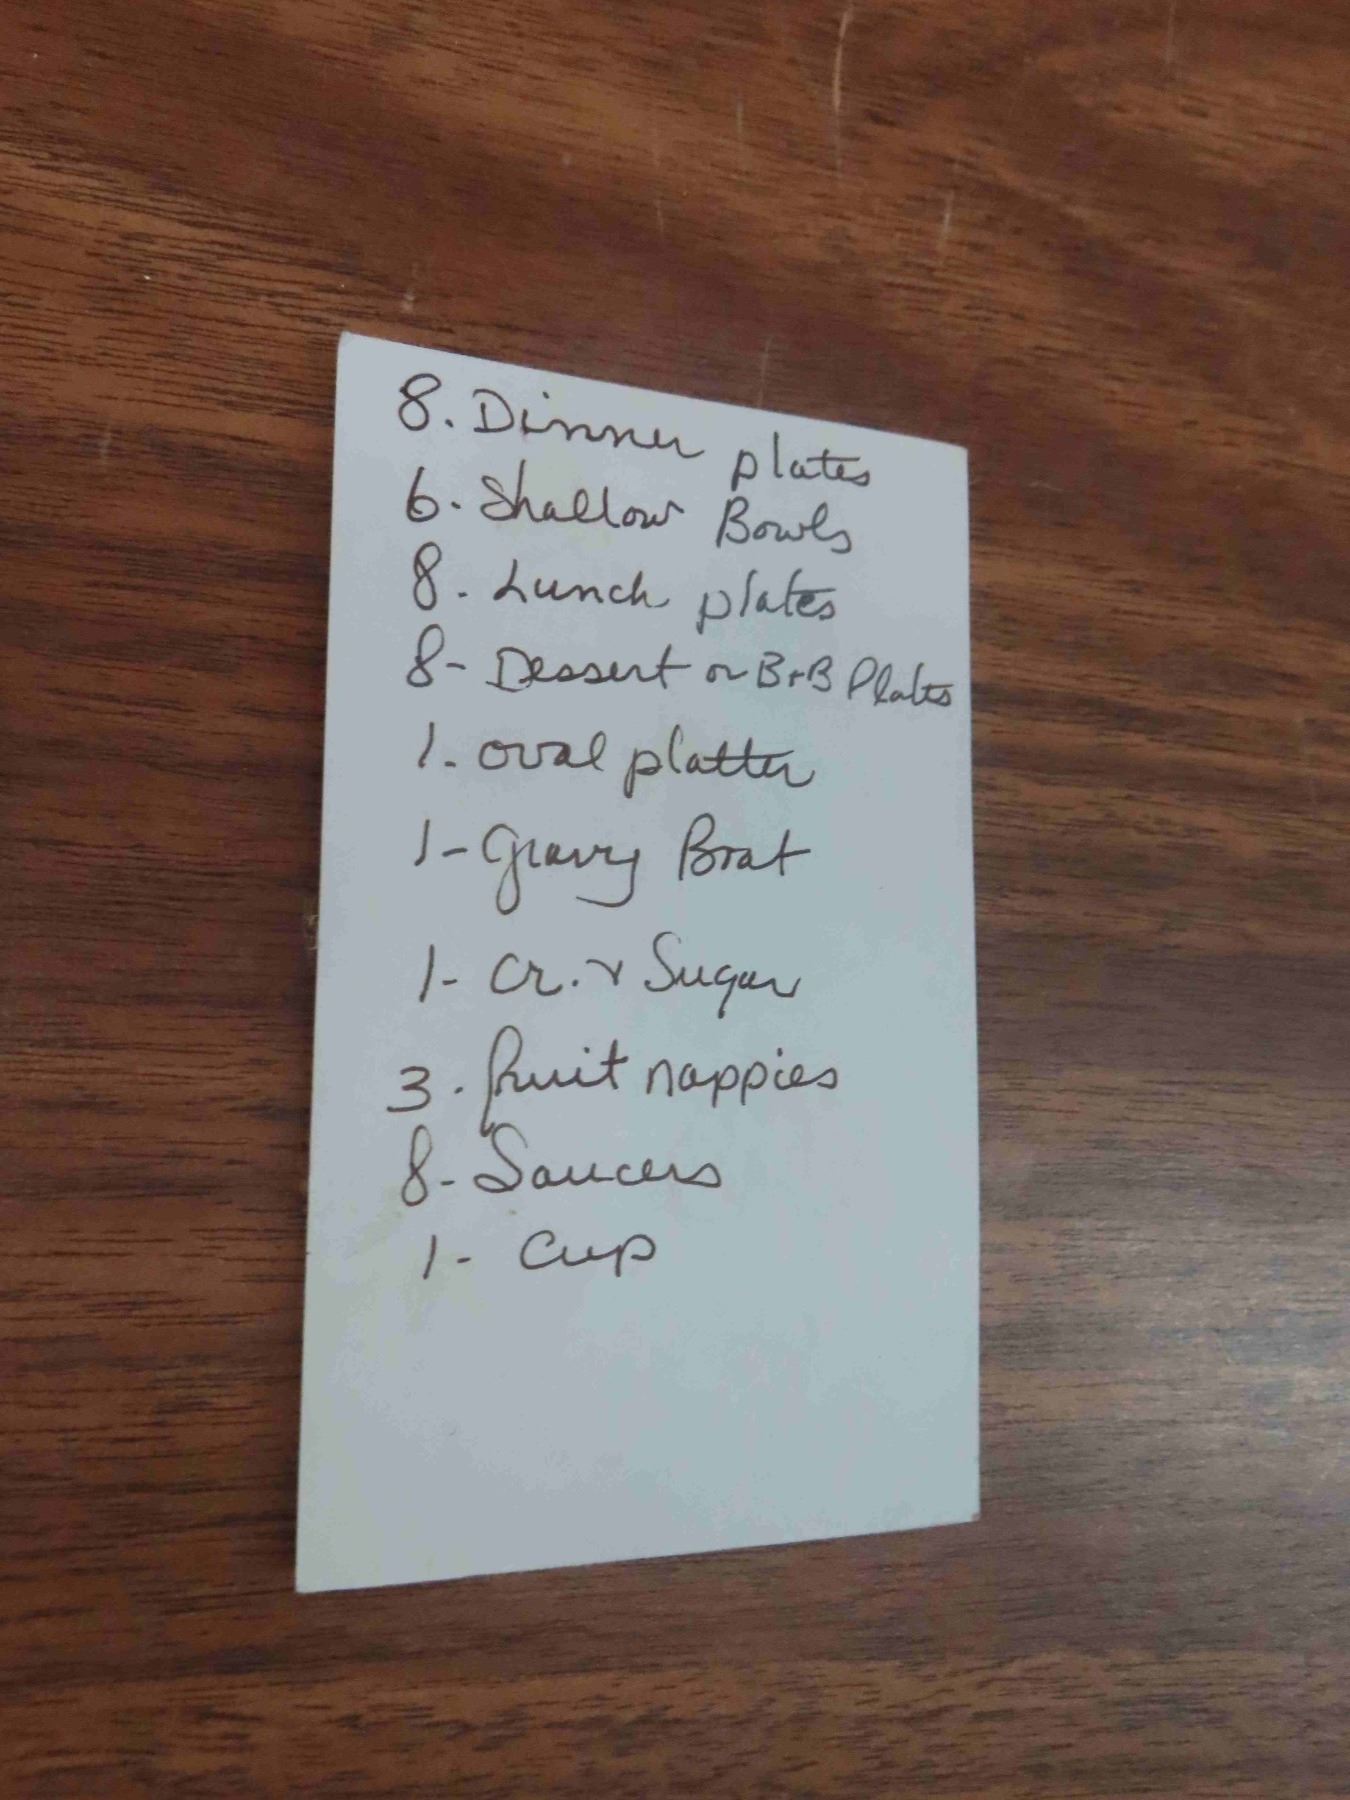 8. Dinner plates
6. Shallow Bowls
8. Lunch plates
8- Dessert or B+B Plates
1. oval platter
1- Gravy Boat
1- Cr. & Sugar
3. fruit nappies
8- Saucers
1- Cup